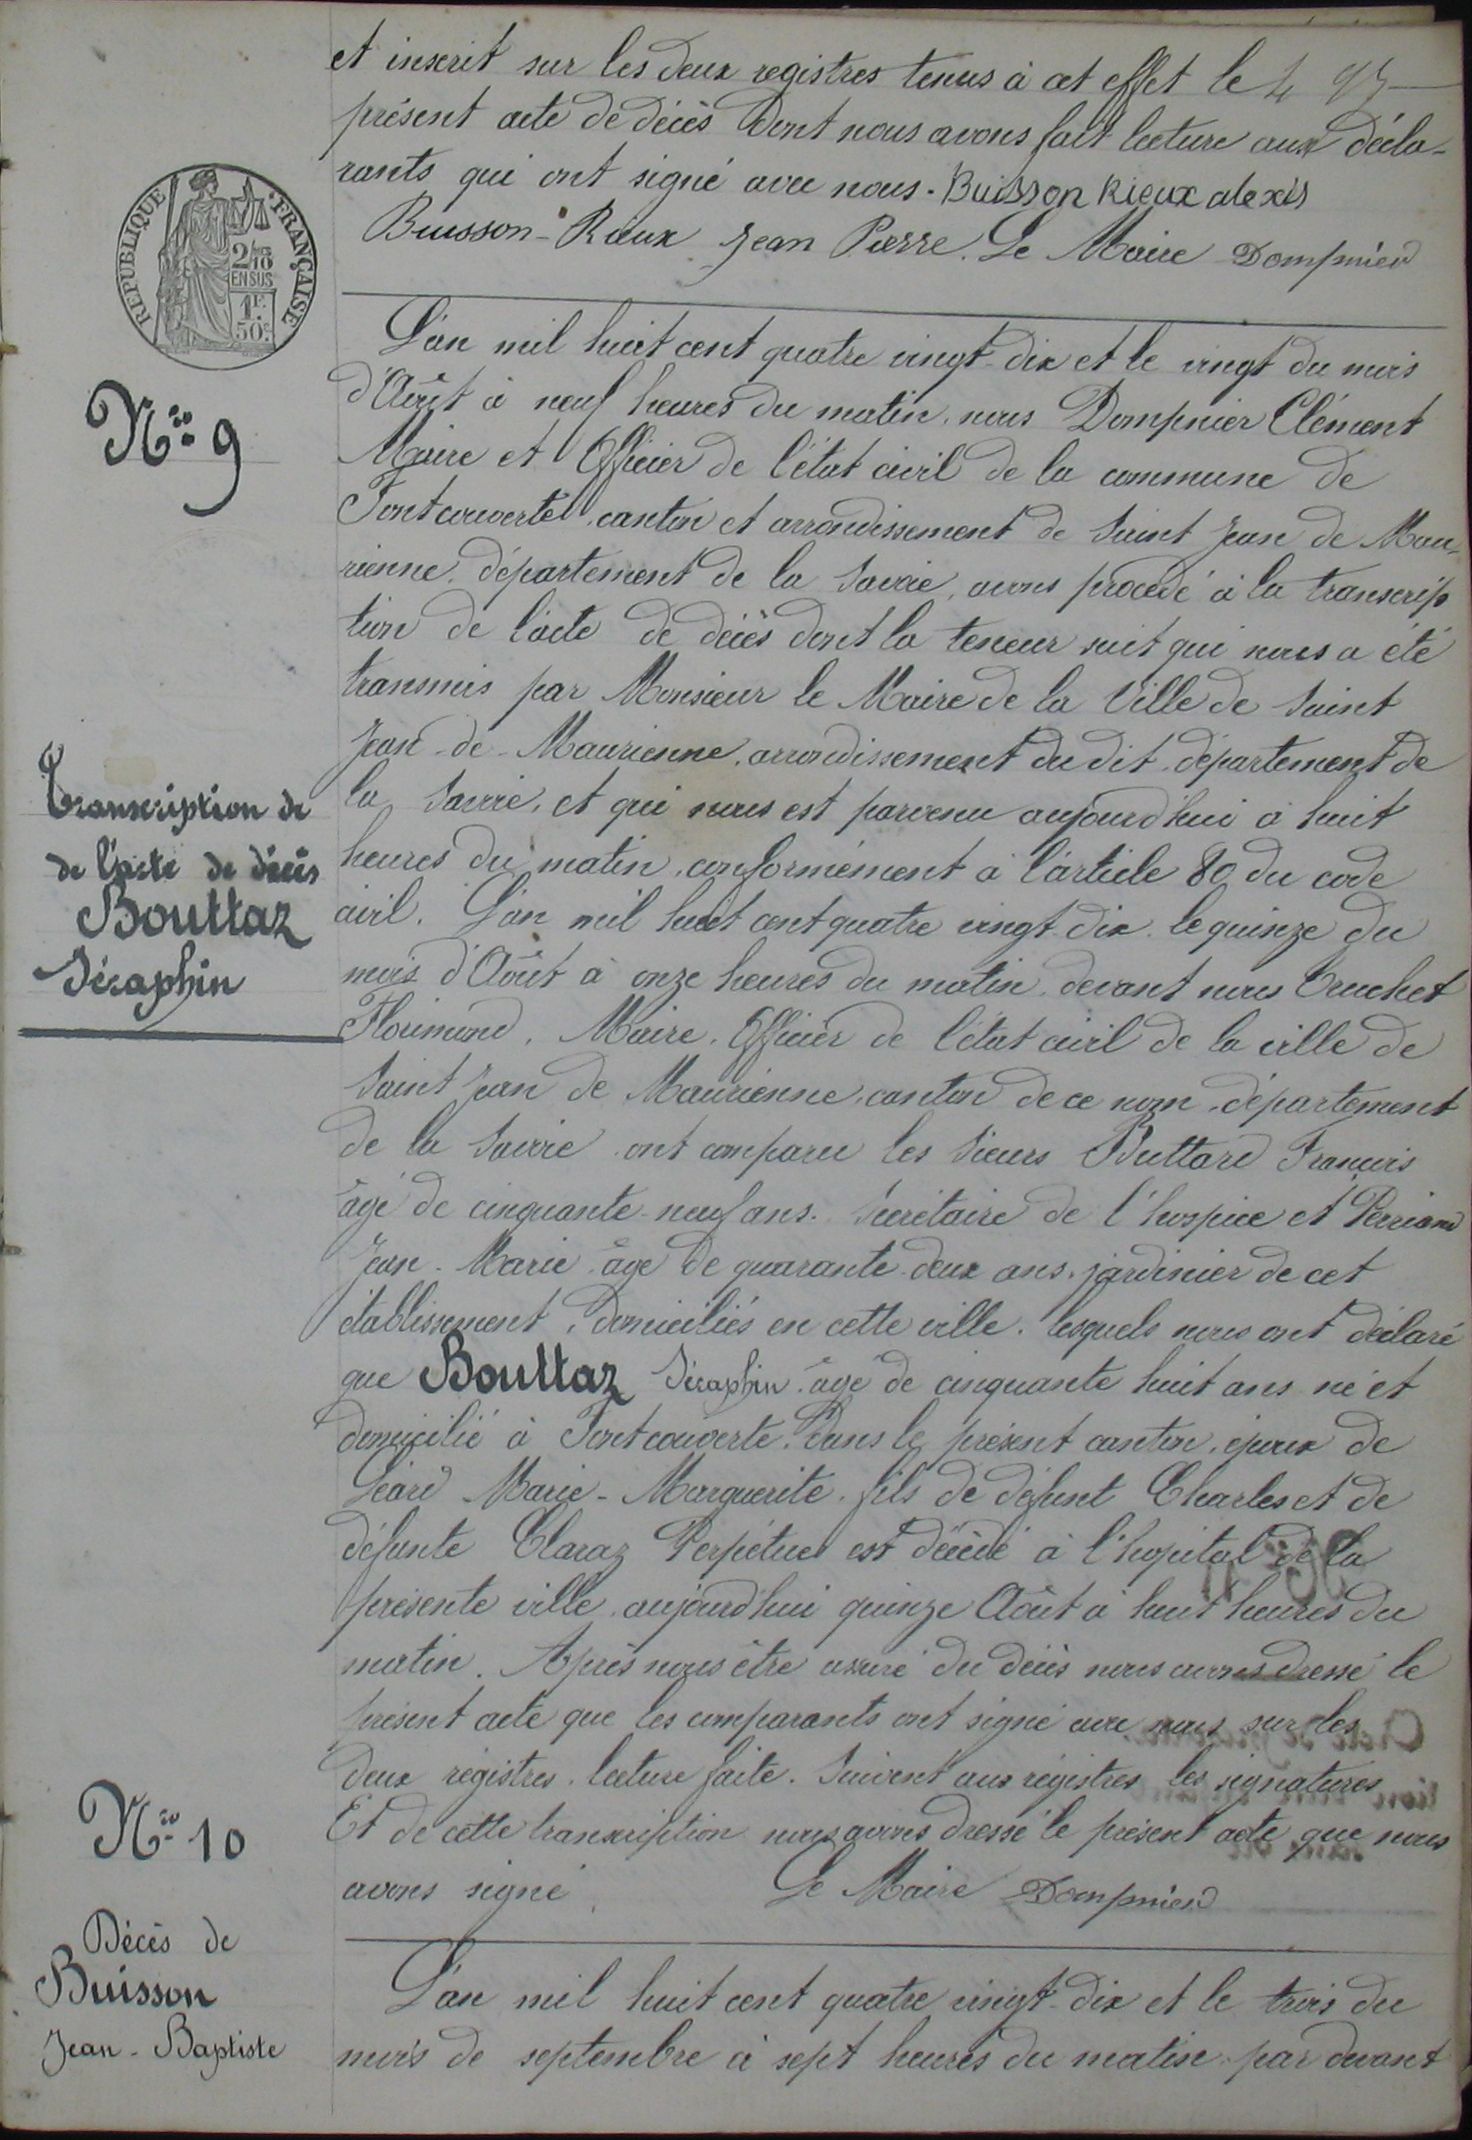 et inscrit sur les deux registres tenus à cet effet le
présent acte de décès dont nous avons fait lecture aux décla-
rants qui ont signé avec nous. Buisson Rieux alexis
Buisson-Roux Jean Pierre. Le Maire Dompnier
REPUBLIQUE FRANÇAISE
2/10
EN SUS
1F.
50c.
Nro 9
Transcription de
de l'acte de décès
Bouttaz
Séraphin
L'an mil huit cent quatre vingt-dix et le vingt du mois
d'Août à neuf heures du matin, nous Dompnier Clément
Maire et Officier de l'état civil de la commune de
Fontcouverte, canton et arrondissement de Saint Jean de Mau-
rienne, département de la Savoie, avons procédé à la transcrip
tion de l'acte de décès dont la teneur suit qui nous a été
transmis par Monsieur le Maire de la Ville de Saint
Jean-de-Maurienne, arrondissement du dit, département de
la Savoie, et qui nous est parvenu aujourd'hui à huit
heures du matin, conformément à l'article 80 du code
civil. L'an mil huit cent quatre vingt dix le quinze du
mois d'Août à onze heures du matin, devant nous Truchet
Florimond, Maire, Officier de l'état civil de la ville de
Saint Jean de Maurienne, canton de ce nom, département
de la Savoie ont comparu les Sieurs Buttard François
âgé de cinquante-neuf ans. Sécrétaire de l'hospice et Perriand
Jean-Marie âgé de quarante-deux ans, jardinier de cet
établissement, domiciliés en cette ville, lesquels nous ont déclaré
que Bouttaz Séraphin âgé de cinquante huit ans né et
domicilié à Fontcouverte, dans le présent canton, époux de
Séard Marie-Marguerite, fils de défunt Charles et de
défunte Claraz Perpétue est décédé à l'hopital de la
présente ville, aujourd'hui quinze Août à huit heures du
matin. Après nous être assuré du décès nous avons dressé le
présent acte que les comparants ont signé avec nous sur les
deux régistres, lecture faite. Suivent aux régistres les signatures
Et de cette transcription nous avons dressé le présent acte que nous
avons signé Le Maire Dompnier
Nro 10
Décès de
Buisson
Jean-Baptiste
L'an mil huit cent quatre vingt-dix et le trois du
mois de septembre à sept heures du matin, par devant